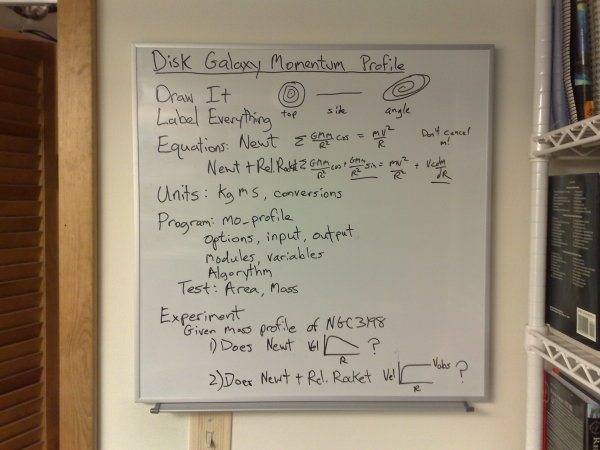 Disk Galaxy Momentum Profile
Draw It
top side angle
Label Everything
Equations: Newt Σ GMm/R² cos = mv²/R Don't cancel m!
Newt + Rel. Rocket Σ GMm/R² cos + GMm/R² sin = mv²/R + vcdm/dR
Units: kg m s, conversions
Program: mo_profile
options, input, output
modules, variables
Algorythm
Test: Area, Mass
Experiment
Given mass profile of NGC3198
1) Does Newt Vel R ?
2) Does Newt + Rel. Rocket Vel R Vobs ?